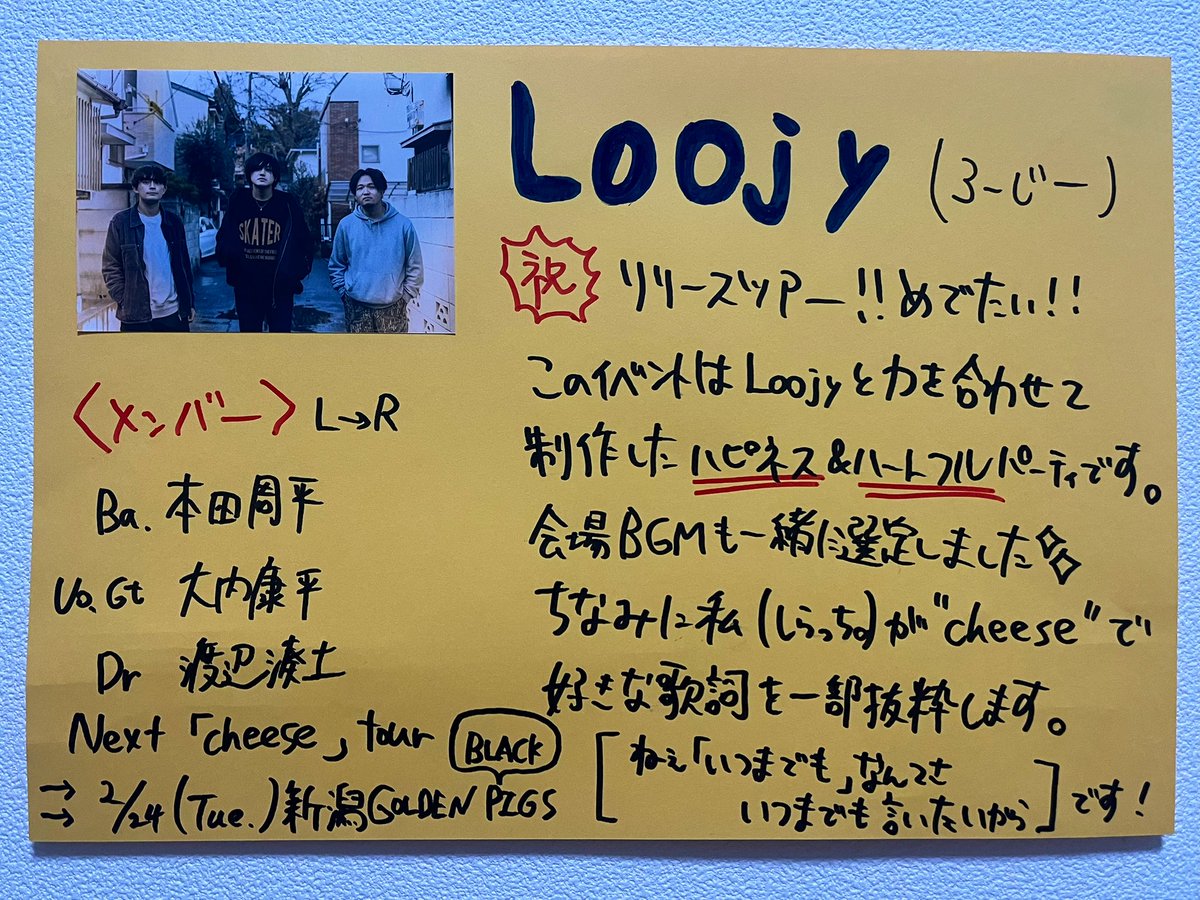 SKATER
Loojy (ろーじー)
祝 リリースツアー!!めでたい!!
このイベントはLoojyと力を合わせて
制作したハピネス&ハートフルパーティです。
会場BGMも一緒に選定しました
ちなみに私(しらっち。)が"cheese"で
好きな歌詞を一部抜粋します。
[ねぇ「いつまでも」なんてさ
いつまでも言いたいから]です!
〈メンバー〉 L→R
Ba. 本田周平
Vo.Gt 大内康平
Dr 渡辺湊士
Next「cheese」tour
BLACK
→ 2/24(Tue.)新潟GOLDEN PIGS
→